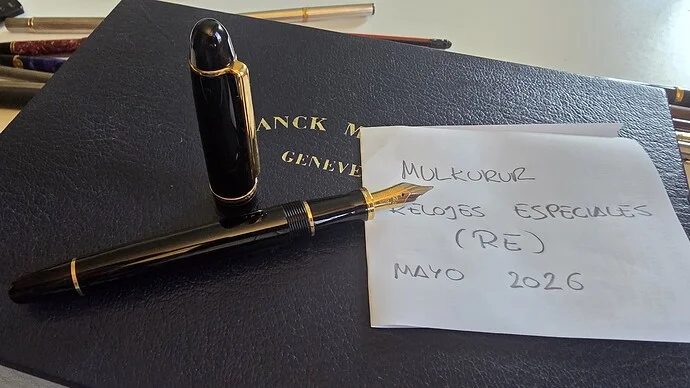 ANCK M
GENEVE
MULKURUR
RELOJES ESPECIALES
(RE)
MAYO 2026